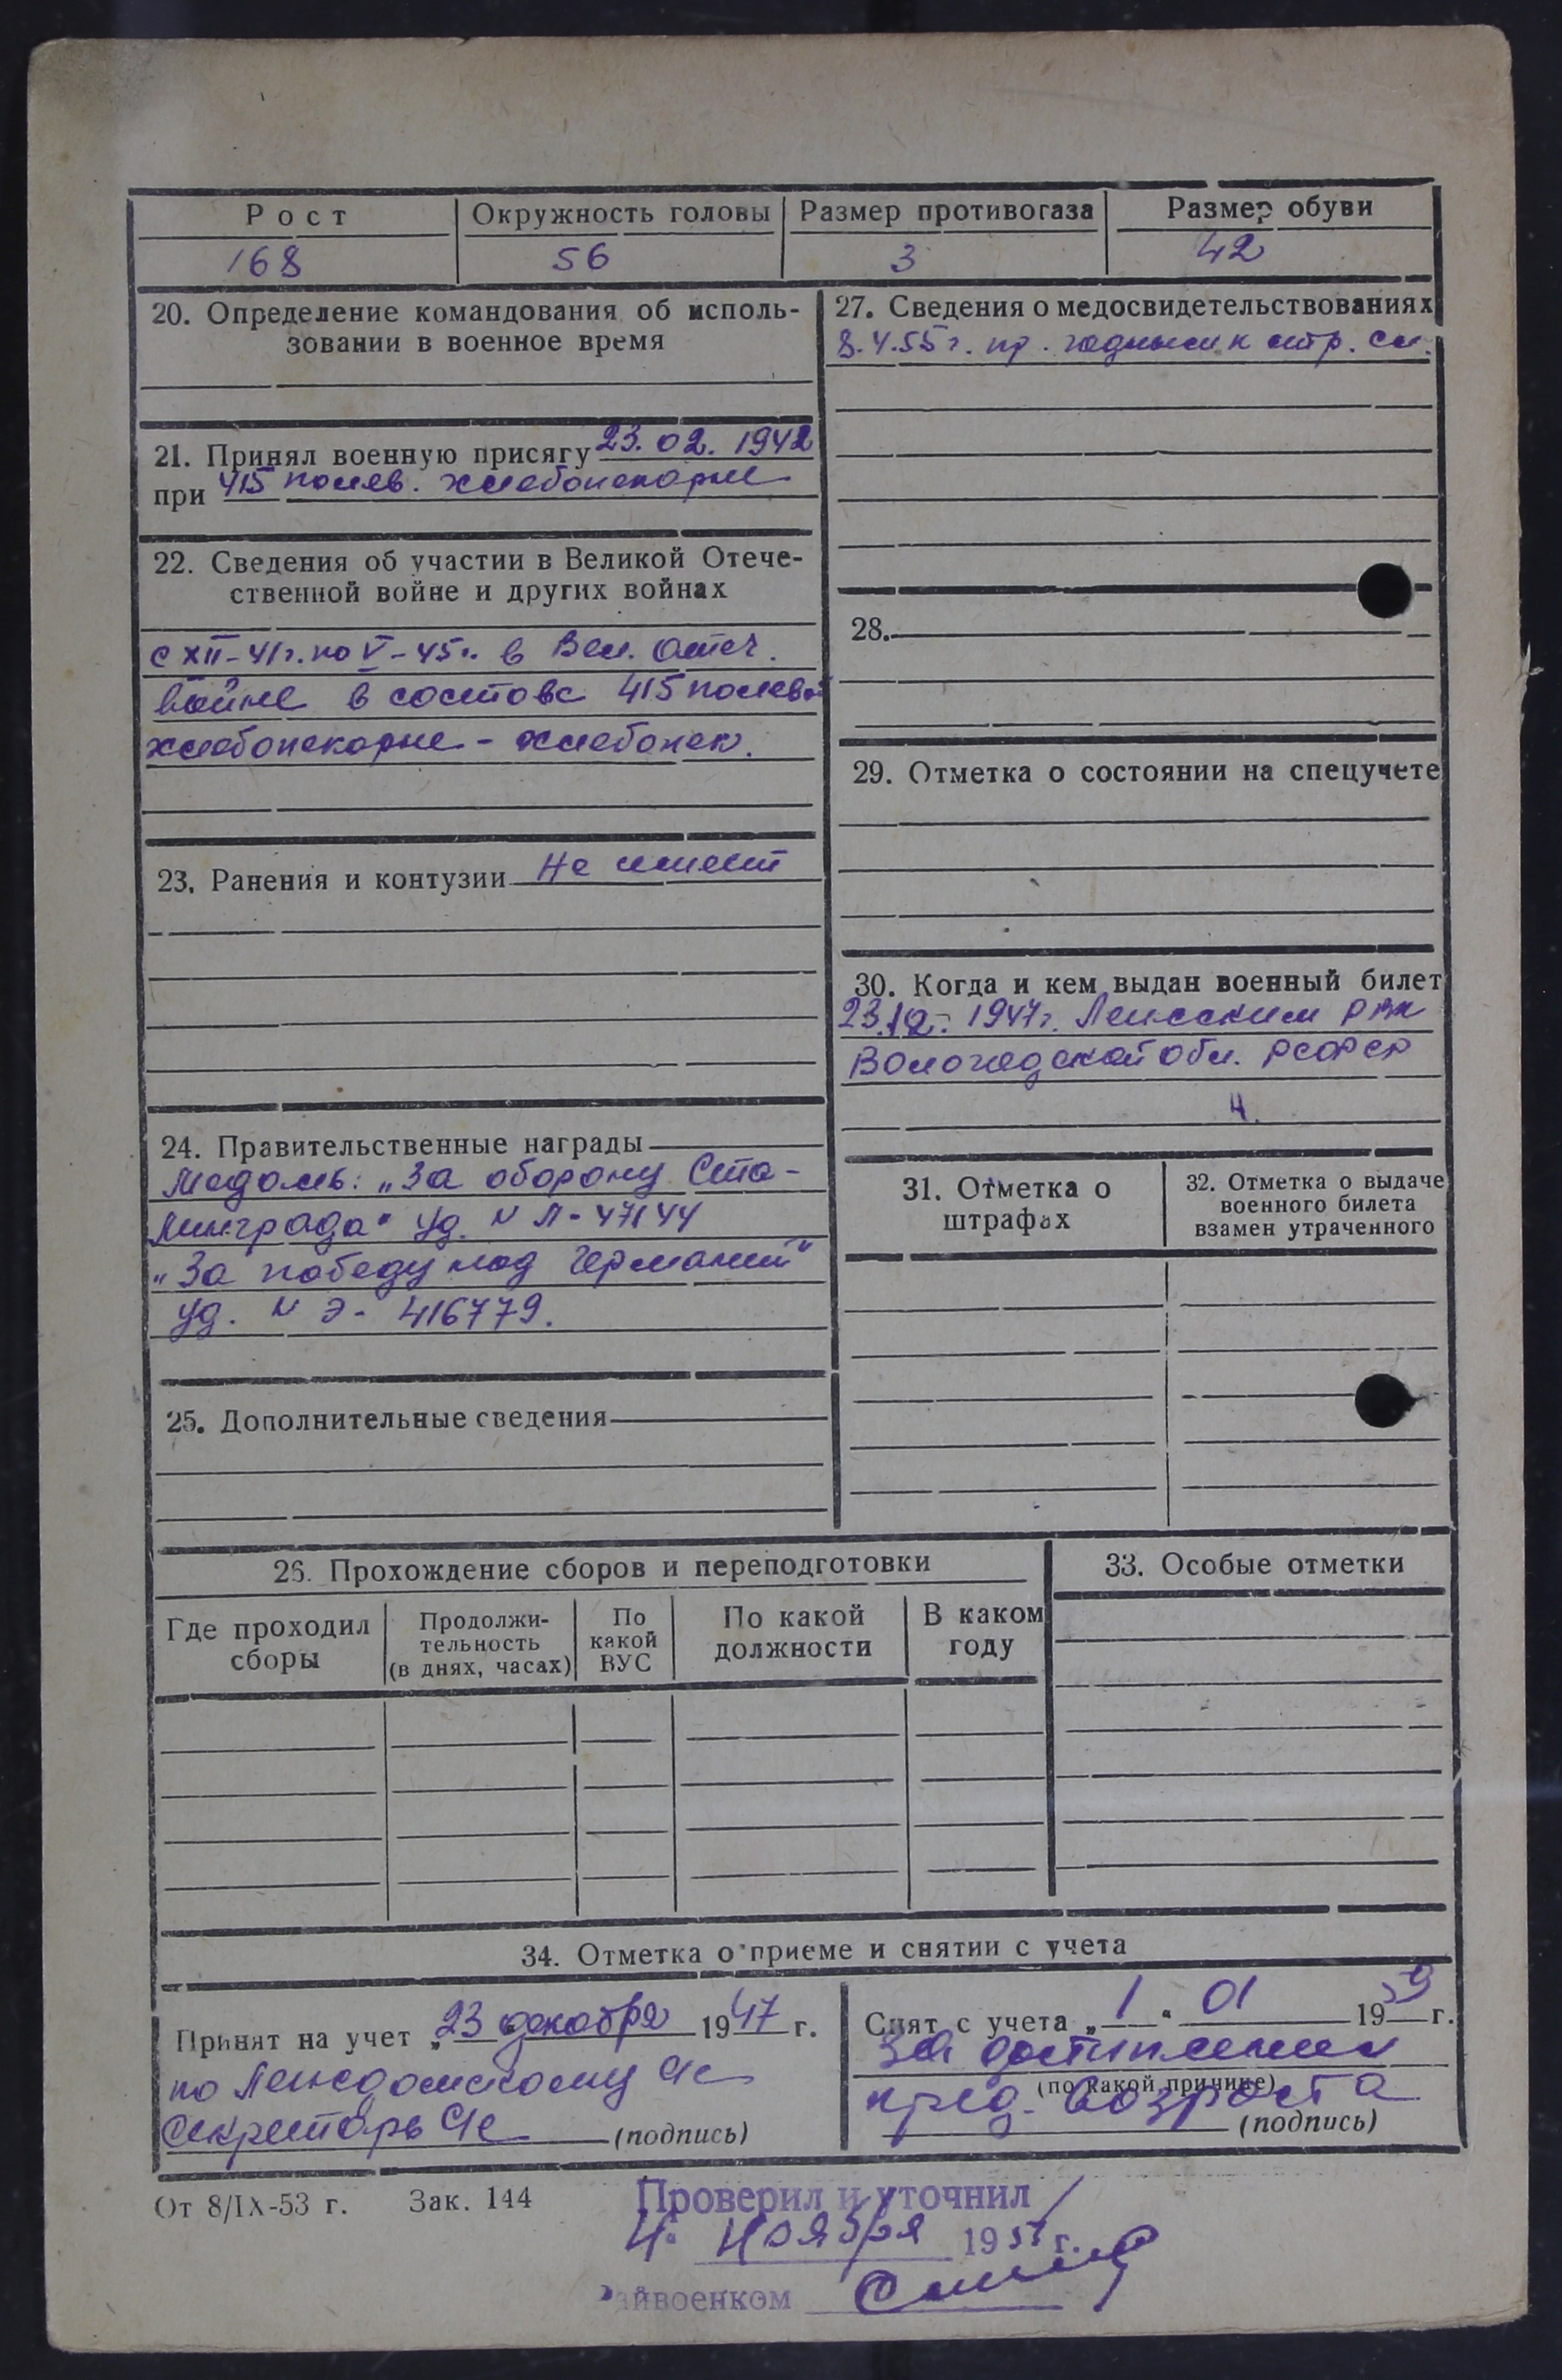 Рост Окружность головы Размер противогаза Размер обуви
168 56 3 42
20. Определение командования об исполь-
зовании в военное время
21. Принял военную присягу 23.02.1942
при 415 полев. хлебопекарне
22. Сведения об участии в Великой Отече-
ственной войне и других войнах
с XII-41г. по V-45г. в Вел. Отеч.
войне в составе 415 полевой
хлебопекарне - хлебопек.
23. Ранения и контузии Не имеет
24. Правительственные награды
Медаль: „За оборону Ста-
линграда" уд. N Л-47144
„За победу над Германией"
уд. N Э-416779.
25. Дополнительные сведения
27. Сведения о медосвидетельствованиях
8.4.55г. пр. годным к стр. сл.
28.
29. Отметка о состоянии на спецучете
30. Когда и кем выдан военный билет
23.12.1947г. РВК
Вологодской обл. РСФСР
31. Отметка о
штрафах
32. Отметка о выдаче
военного билета
взамен утраченного
26. Прохождение сборов и переподготовки
Где проходил
сборы
Продолжи-
тельность
(в днях, часах)
По
какой
ВУС
По какой
должности
В каком
году
33. Особые отметки
34. Отметка о приеме и снятии с учета
Принят на учет „23" декабря 1947 г.
по
Секретарь (подпись)
Снят с учета „1" 01 1959 г.
за достижением
(по какой причине)
пред. возраста
(подпись)
От 8/IX-53 г. Зак. 144
Проверил и уточнил
4. ноября 195 г.
Райвоенком